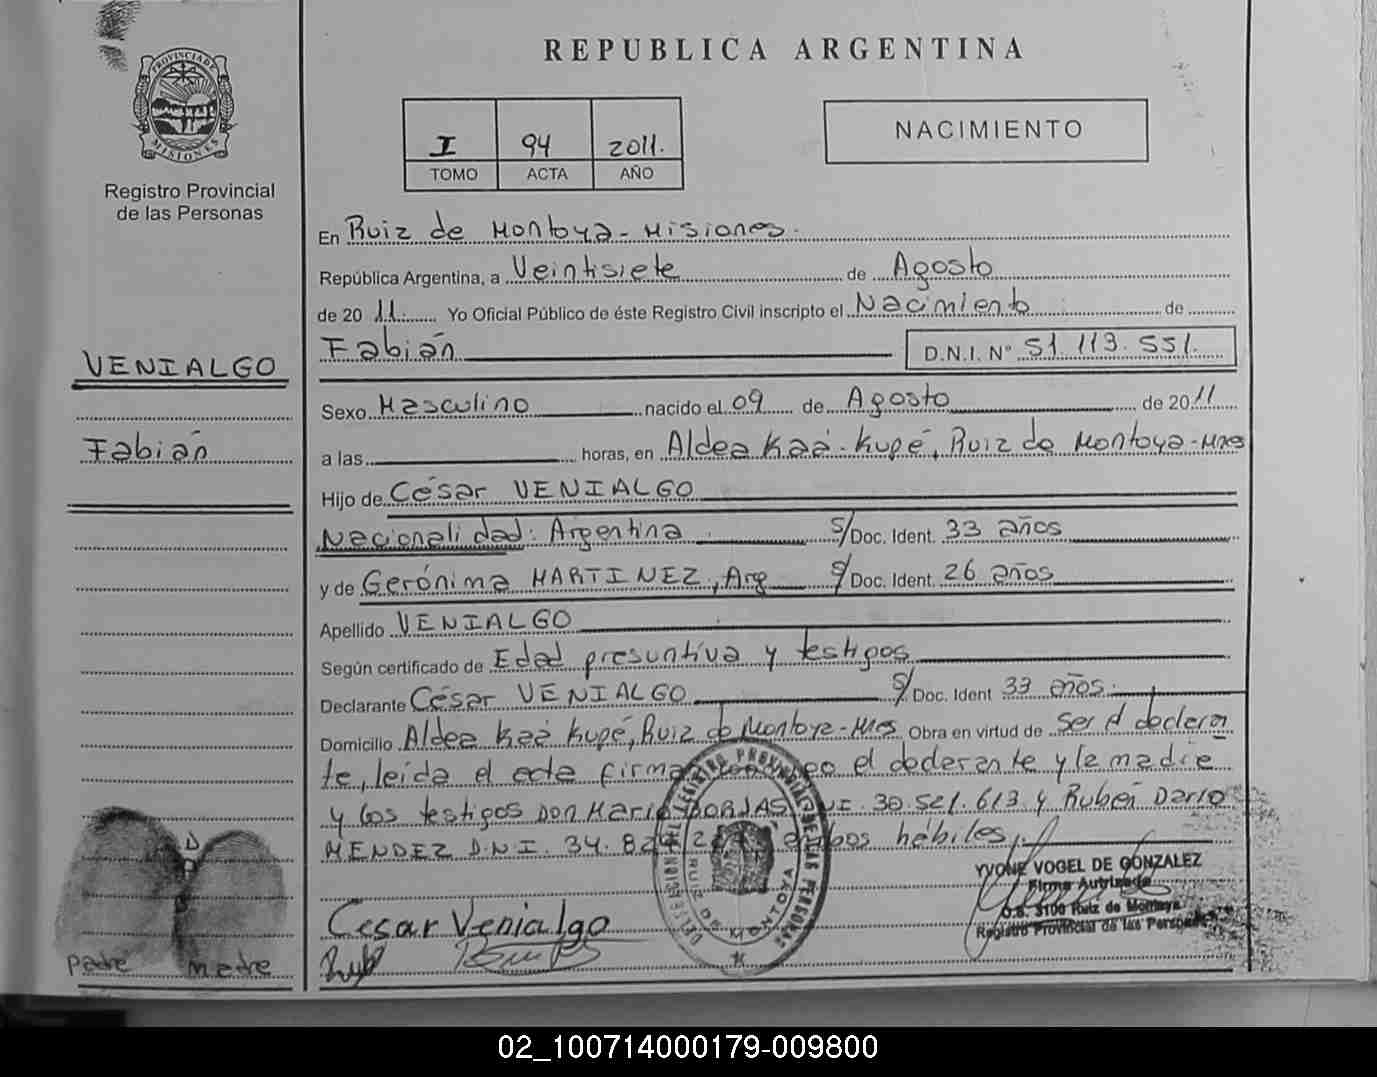 REPUBLICA ARGENTINA
PROVINCIA DE MISIONES
Registro Provincial
de las Personas
I 94 2011.
TOMO ACTA AÑO
NACIMIENTO
En Ruiz de Montoya - Misiones.
República Argentina, a Veintisiete de Agosto
de 20 11 Yo Oficial Público de éste Registro Civil inscripto el Nacimiento de
Fabián D.N.I. N° 51.113.551.
VENIALGO
Fabián
Sexo Masculino nacido el 09 de Agosto de 2011
a las horas, en Aldea Kaá-Kupé, Ruiz de Montoya-Mnes
Hijo de César VENIALGO
Nacionalidad: Argentina S/Doc. Ident. 33 años
y de Gerónima MARTINEZ, Arg S/Doc. Ident. 26 años
Apellido VENIALGO
Según certificado de Edad presuntiva y testigos
Declarante César VENIALGO S/Doc. Ident 33 años.
Domicilio Aldea Kaá Kupé, Ruiz de Montoya-Mnes Obra en virtud de ser el declaran
te, leída el acta firma el declarante y la madre
y los testigos Don Mario BORJAS 30.521.613 y Rubén Dario
MENDEZ D.N.I. 34. ambos hábiles,
REGISTRO PROVINCIAL DE LAS PERSONAS
RUIZ DE MONTOYA
YVONE VOGEL DE GONZALEZ
Firma Autrizada
O.S. 3100 Ruiz de Montoya
Registro Provincial de las Personas
Cesar Venialgo
D
Padre Madre
02_100714000179-009800